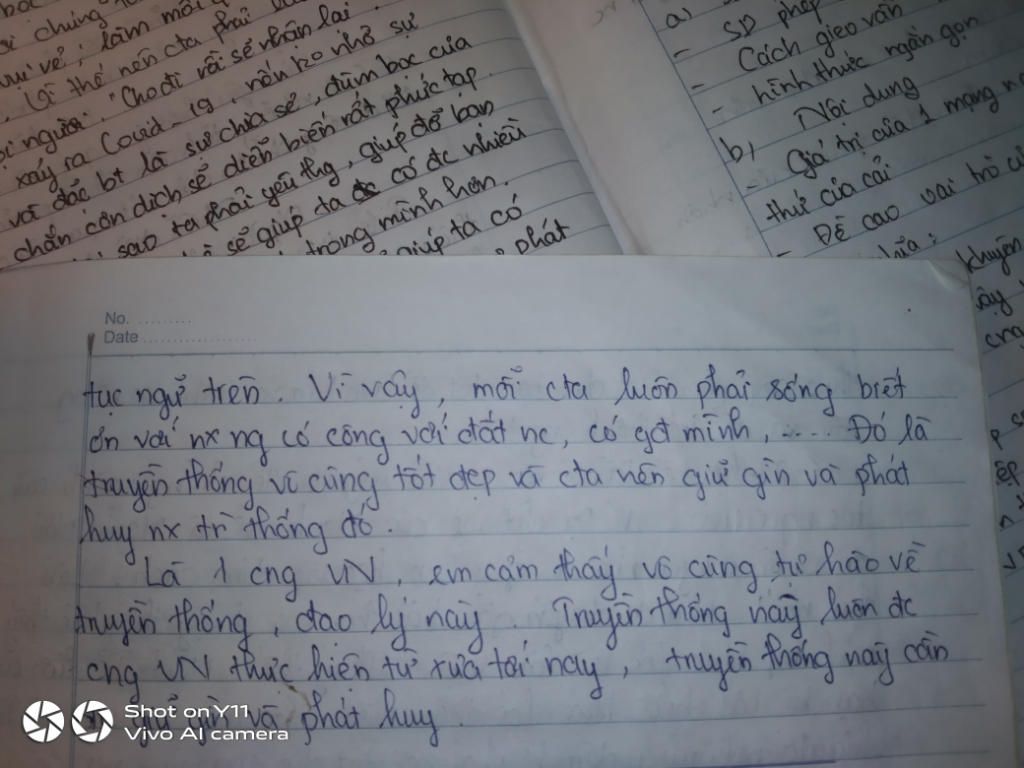 vui vẻ; làm mỗi
Vì thế nên cta phải
người. "Cho đi rồi sẽ nhận lại
xảy ra Covid-19, nếu ko nhờ sự
và đặc bt là sự chia sẻ, đùm bọc của
chắn còn dịch sẽ diễn biến rất phức tạp
sao ta phải yêu thg, giúp đỡ bạn
sẽ giúp ta có đc nhiều
trọng mình hơn.
giúp ta có
phát
a)
- SD phép
- Cách gieo vần
- hình thức ngắn gọn
b) Nội dung
- Giá trị của 1 mạng
thứ của cải
- Đề cao vai trò
khuyên
No. ............
Date ....................
tục ngữ trên. Vì vậy, mỗi cta luôn phải sống biết
ơn với nx ng có công với đất nc, có gđ mình, .... Đó là
truyền thống vô cùng tốt đẹp và cta nên giữ gìn và phát
huy nx tr thống đó.
Là 1 cng VN, em cảm thấy vô cùng tự hào về
truyền thống, đạo lý này. Truyền thống này luôn đc
cng VN thực hiện từ xưa tới nay, truyền thống này cần
giữ gìn và phát huy.
Shot on Y11
Vivo AI camera